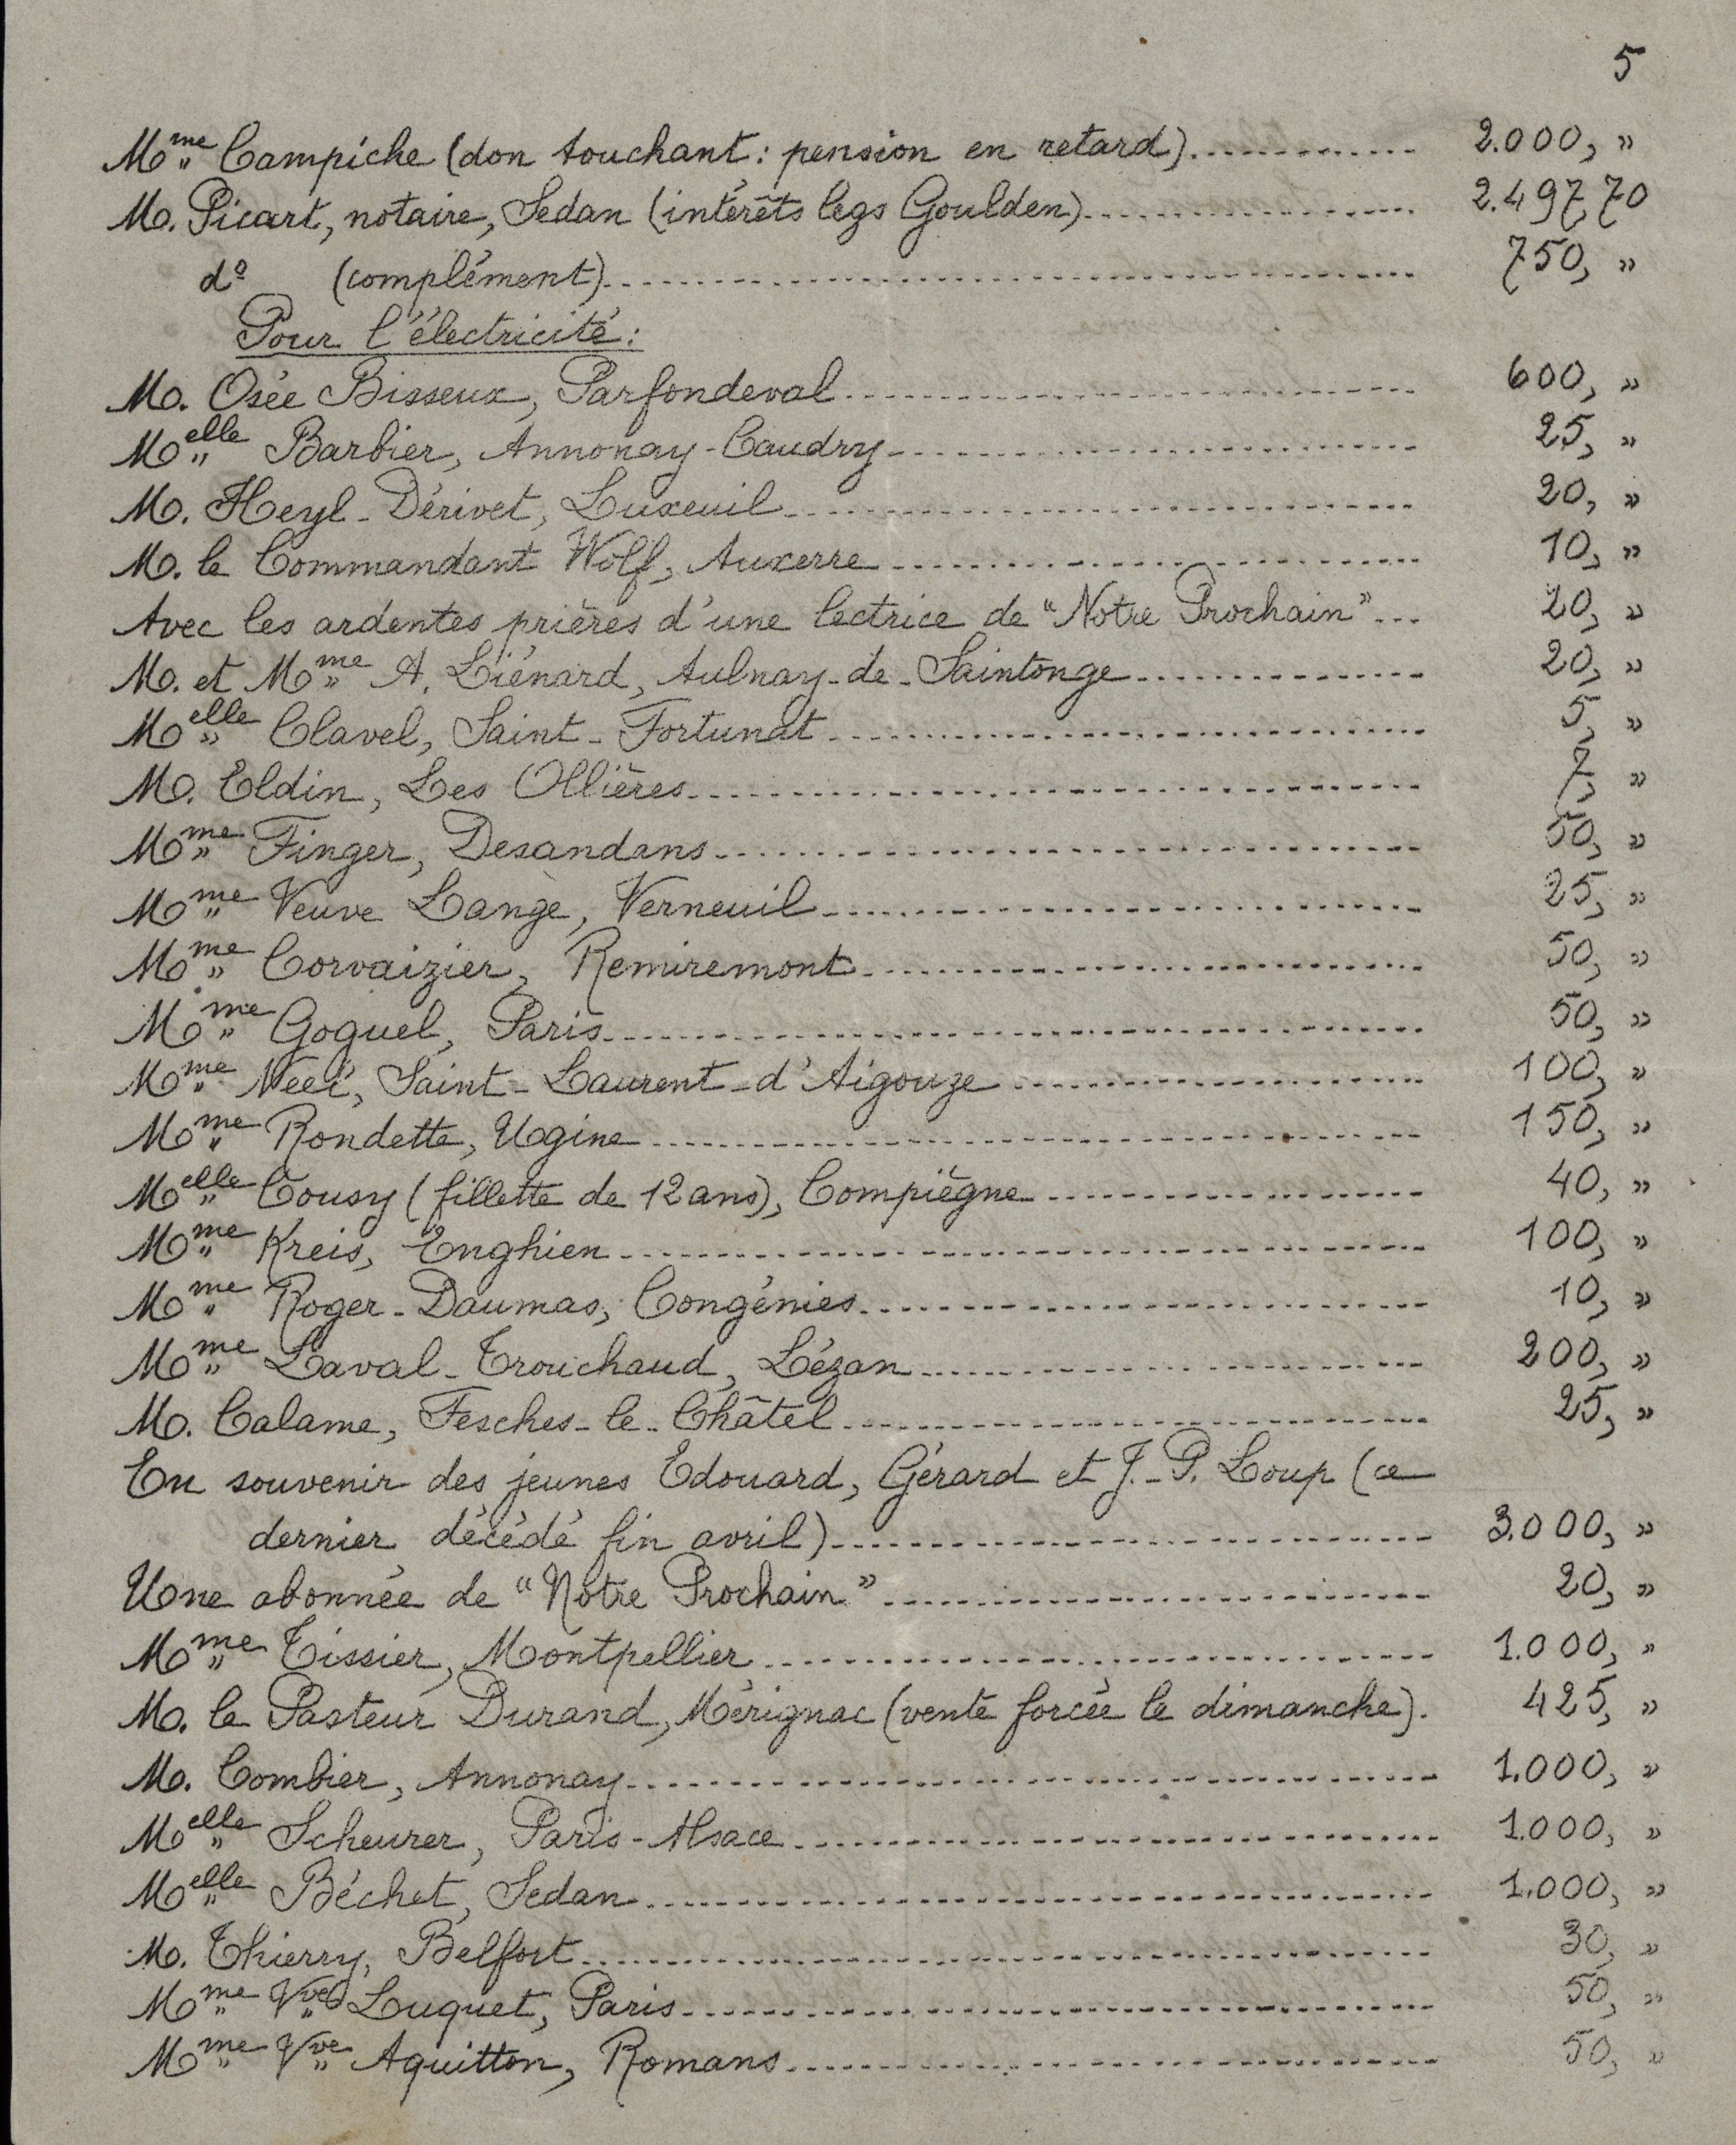 5
Mme Campiche (don touchant : pension en retard)............. 2.000, "
M. Picart, notaire, Sedan (intérêts legs Goulden)................. 2.497,70
do (complément)........................................ 750, "
Pour l'électricité :
M. Osée Bisseux, Parfondeval............................ 600, "
Melle Barbier, Annonay-Caudry............................ 25, "
M. Heyl-Dérivet, Luxeuil............................ 20, "
M. le Commandant Wolf, Auxerre............................ 10, "
Avec les ardentes prières d'une lectrice de "Notre Prochain"... 20, "
M. et Mme A. Liénard, Aulnay-de-Saintonge............... 20, "
Melle Clavel, Saint-Fortunat............................ 5, "
M. Eldin, Les Ollières............................ 7, "
Mme Finger, Desandans............................ 50, "
Mme Veuve Lange, Verneuil............................ 25, "
Mme Corvaizier, Remiremont............................ 50, "
Mme Goguel, Paris............................ 50, "
Mme Saint-Laurent-d'Aigouze............................ 100, "
Mme Rondette, Ugine............................ 150, "
Melle Cousy (fillette de 12 ans), Compiègne.................... 40, "
Mme Kreis, Enghien............................ 100, "
Mme Roger-Daumas, Congénies............................ 10, "
Mme Laval-Trouchaud, Lézan............................ 200, "
M. Calame, Fesches-le-Châtel............................ 25, "
En souvenir des jeunes Edouard, Gérard et J.-P. Loup (ce
dernier décédé fin avril)............................ 3.000, "
Une abonnée de "Notre Prochain"............................ 20, "
Mme Tissier, Montpellier............................ 1.000, "
M. le Pasteur Durand, Mérignac (vente forcée le dimanche). 425, "
M. Combier, Annonay............................ 1.000, "
Melle Scheurer, Paris-Alsace............................ 1.000, "
Melle Béchet, Sedan............................ 1.000, "
M. Thierry, Belfort............................ 30, "
Mme Vve Luquet, Paris............................ 50, "
Mme Vve Aquitton, Romans............................ 50, "